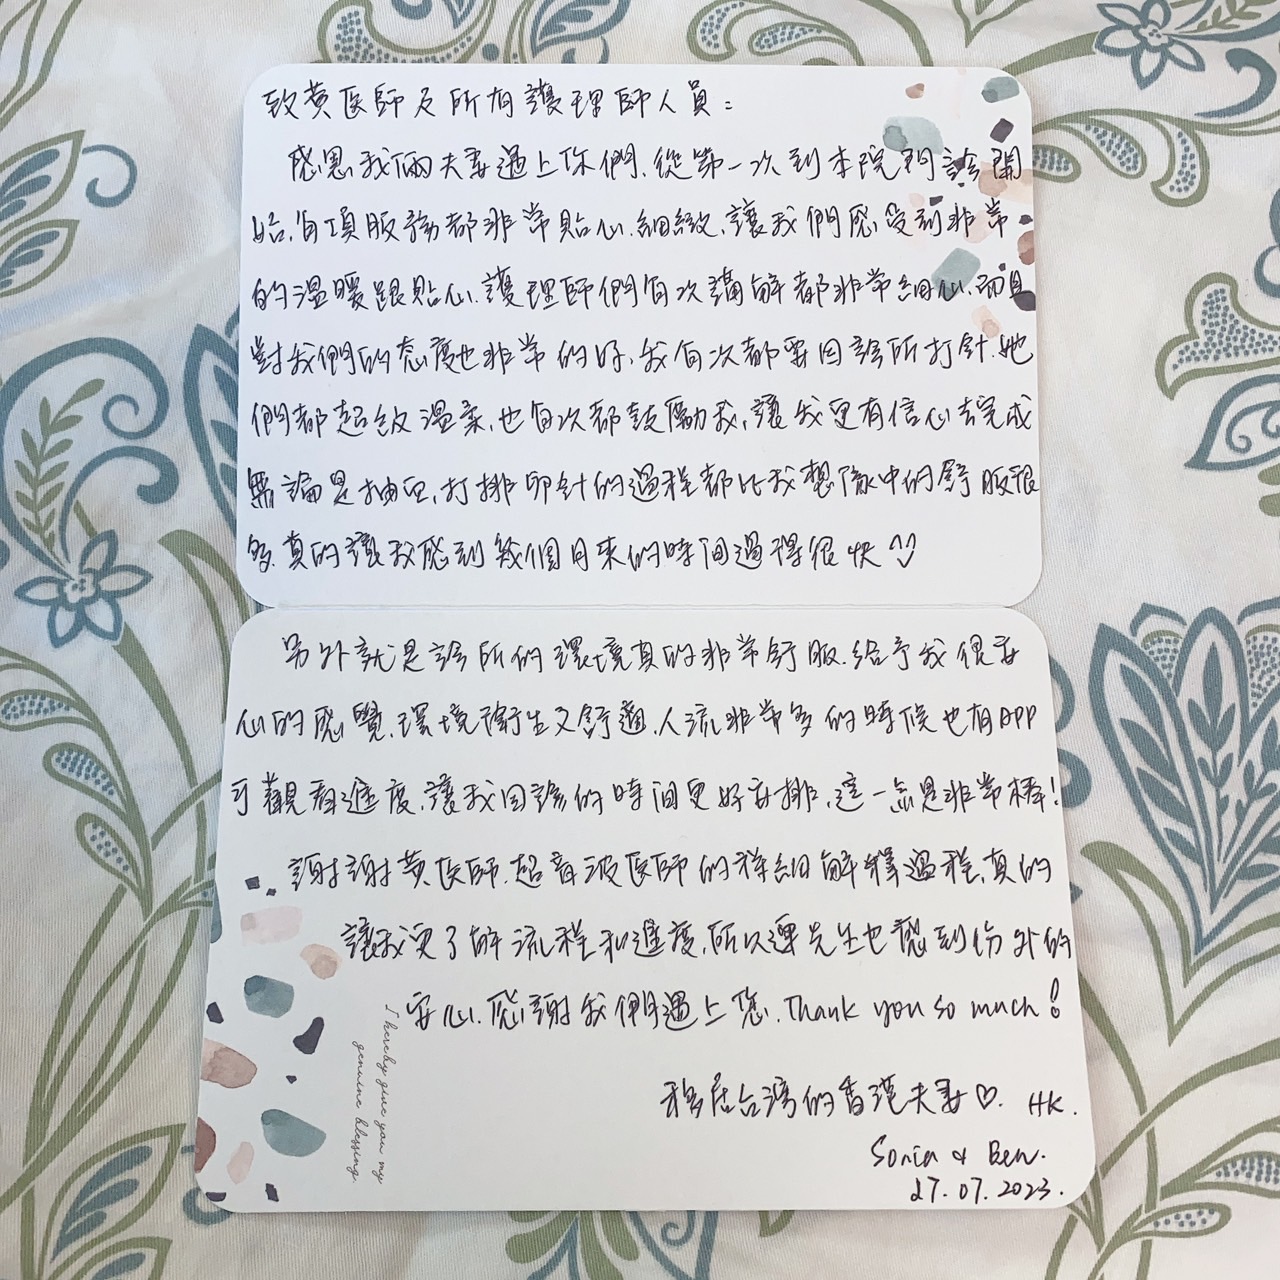 致黃医師及所有護理師人員：
感恩我倆夫妻遇上你們，從第一次到本院門診開
始，每項服務都非常貼心，細緻，讓我們感受到非常
的溫暖跟貼心，護理師們每次講解都非常細心，而且
對我們的態度也非常的好，我每次都要回診所打針，她
們都超級溫柔，也每次都鼓勵我，讓我更有信心去完成
無論是抽血，打排卵針的過程都比我想像中的舒服很
多，真的讓我感到幾個月來的時間過得很快
另外就是診所的環境真的非常舒服，給予我很安
心的感覺，環境衛生又舒適，人流非常多的時候也有APP
可觀看進度，讓我回診的時間更好安排，這一点是非常棒！
謝謝黃医師，超音波医師的詳細解釋過程，真的
讓我更了解流程和進度，所以連先生也感到份外的
安心，感謝我們遇上您，Thank you so much！
移居台灣的香港夫妻♡. HK.
Sonia & Ben.
27.07.2023.
I hereby give you my
genuine blessing.